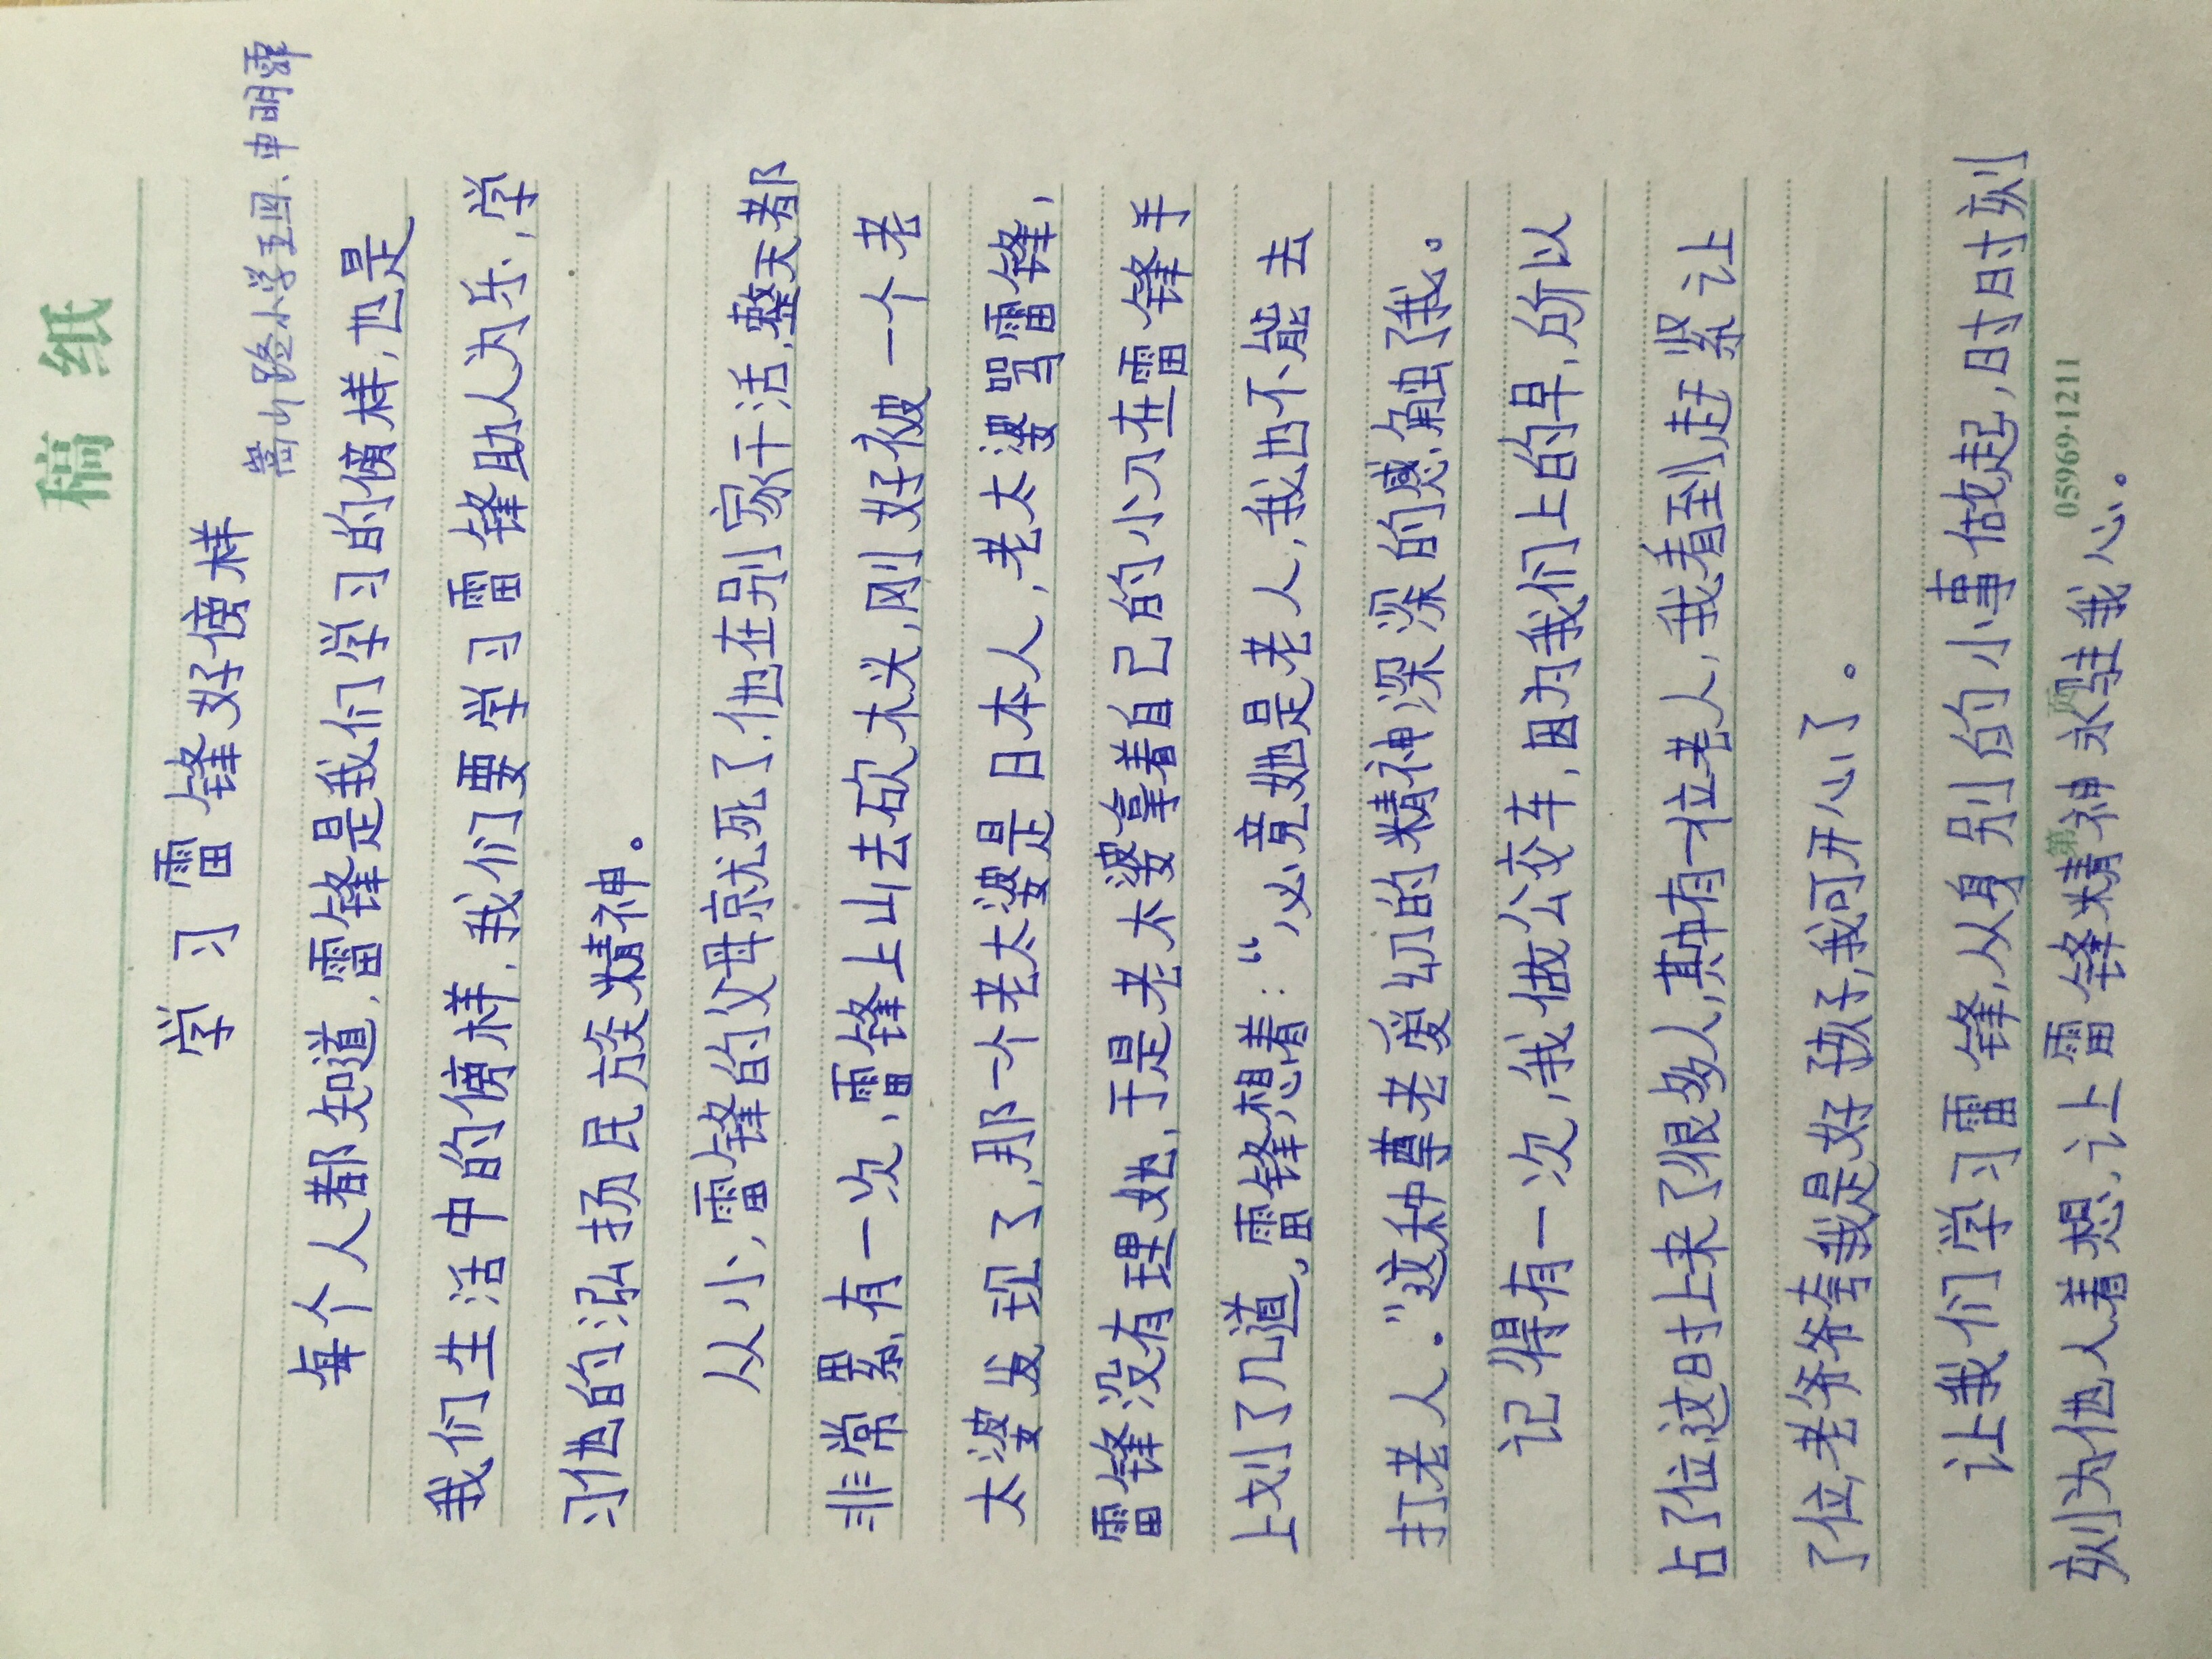 稿 纸
学习雷锋好傍样
嵩山路小学五四、申明霏
每个人都知道,雷锋是我们学习的傍样,也是
我们生活中的傍样,我们要学习雷锋助人为乐,学
习他的泓扬民族精神。
从小,雷锋的父母就死了.他在别家干活,整天都
非常累,有一次,雷锋上山去砍木头,刚好被一个老
太婆发现了,那一个老太婆是日本人,老太婆骂雷锋,
雷锋没有理她,于是老太婆拿着自己的小刀在雷锋手
上划了几道,雷锋想着:“必竟她是老人,我也不能去
打老人。”这种尊老爱幼的精神深深的感触了我。
记得有一次,我做公交车,因为我们上的早,所以
占了位,这时上来了很多人,其中有一位老人,我看到赶紧让
了位,老爷爷夸我是好孩子,我可开心了。
让我们学习雷锋,从身别的小事做起,时时刻
刻为他人着想,让雷锋精神永驻我心。
第 页 05969·1211